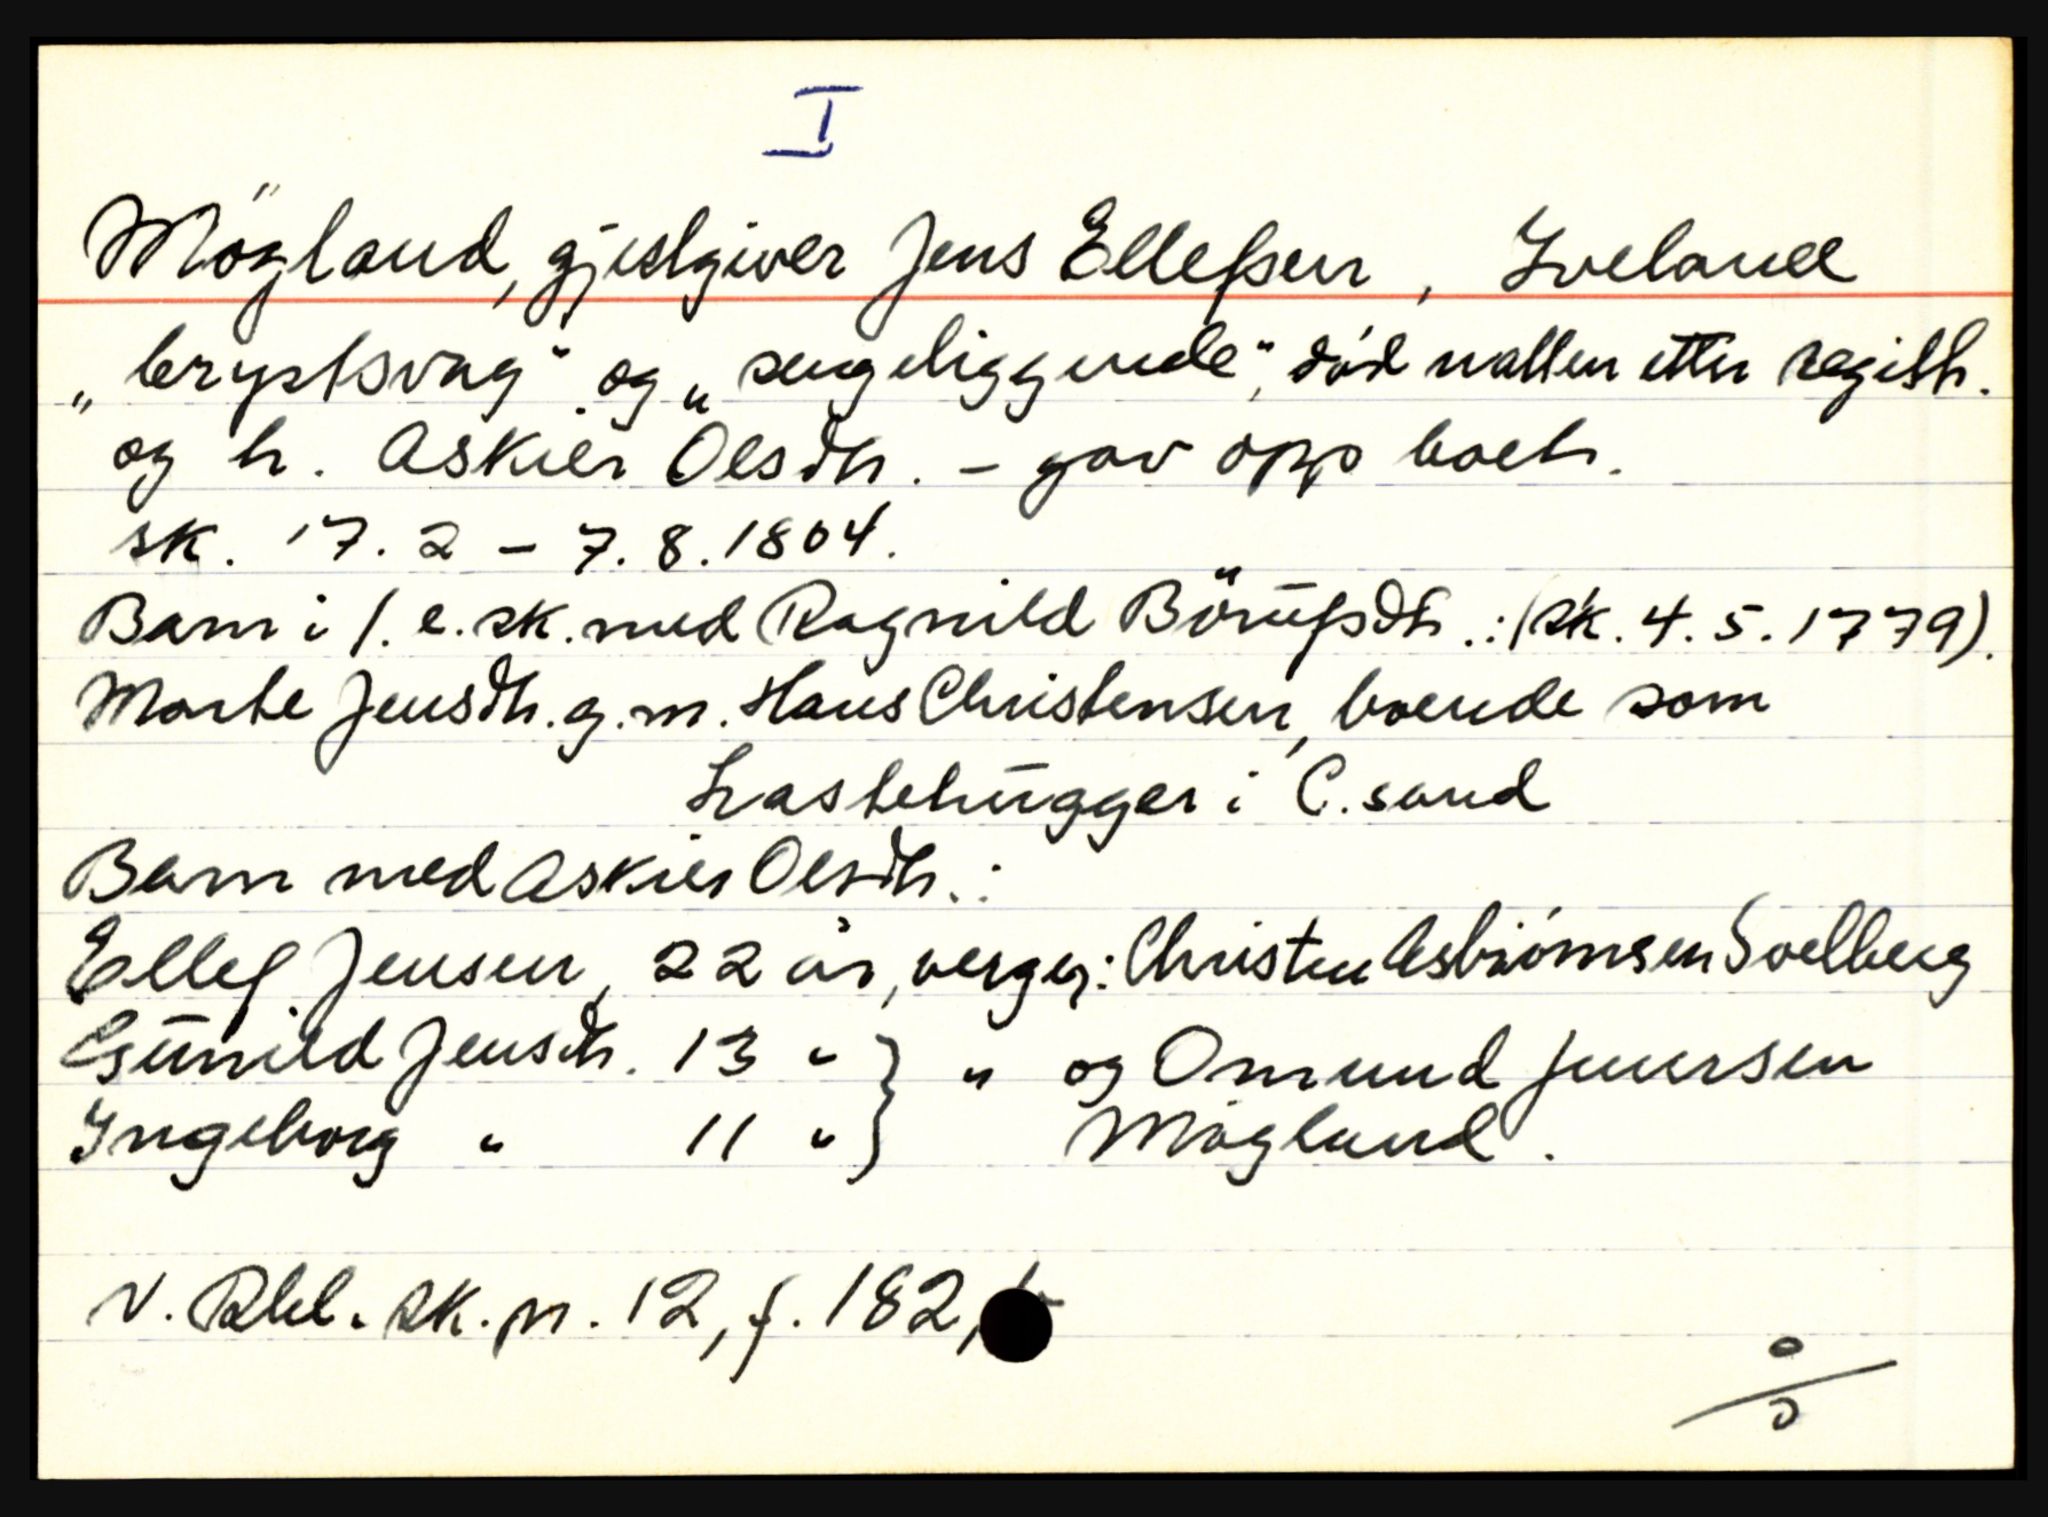 I
Mögland, gjestgiver Jens Ellefsen, Iveland
„brystsvag" og „sengeliggende", död natten etter registr.
og h. Askier Olsdtr. - gav opp boet.
sk. 17.2 - 7.8.1804.
Barn i 1. e.sk. med Ragnild Börufsdtr.: (sk. 4.5.1779).
Marte Jensdtr. g.m. Hans Christensen, boende som
Lastehugger i C.sand
Barn med Askier Olsdtr.:
Ellef Jensen, 22 år, verger: Christen Asbiörnsen Soelberg
Gunild Jensdtr. 13 " } " og Omund Jensen
Ingeborg " 11 " } Mögland.
N. Rbl. sk. pr. 12, f. 182, b
0/0